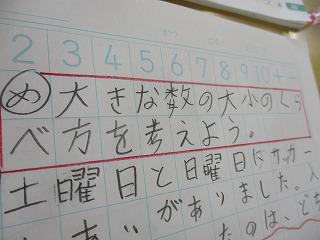 2 3 4 5 6 7 8 9 10 + -
め 大きな数の大小のくら
べ方を考えよう。
土曜日と日曜日にサッカー
あいがありました。入
たのは、どち